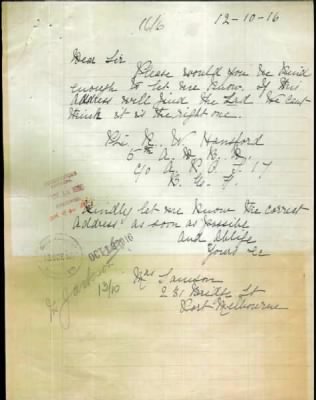 16/6 12-10-16
Dear Sir
Please would you be kind
enough to let me know. If this
address will find the Lad. We cant
think it is the right one.
Pte R. W. Hansford
5th A. M. R. D.
c/o A. P. O. S. 17
B. E. F.
Kindly let me know the correct
address as soon as possible
and oblige
Yours &c
Mrs Samson
231 Bridge St
Port Melbourne
OCT 1916
Mr Jackson
13/10